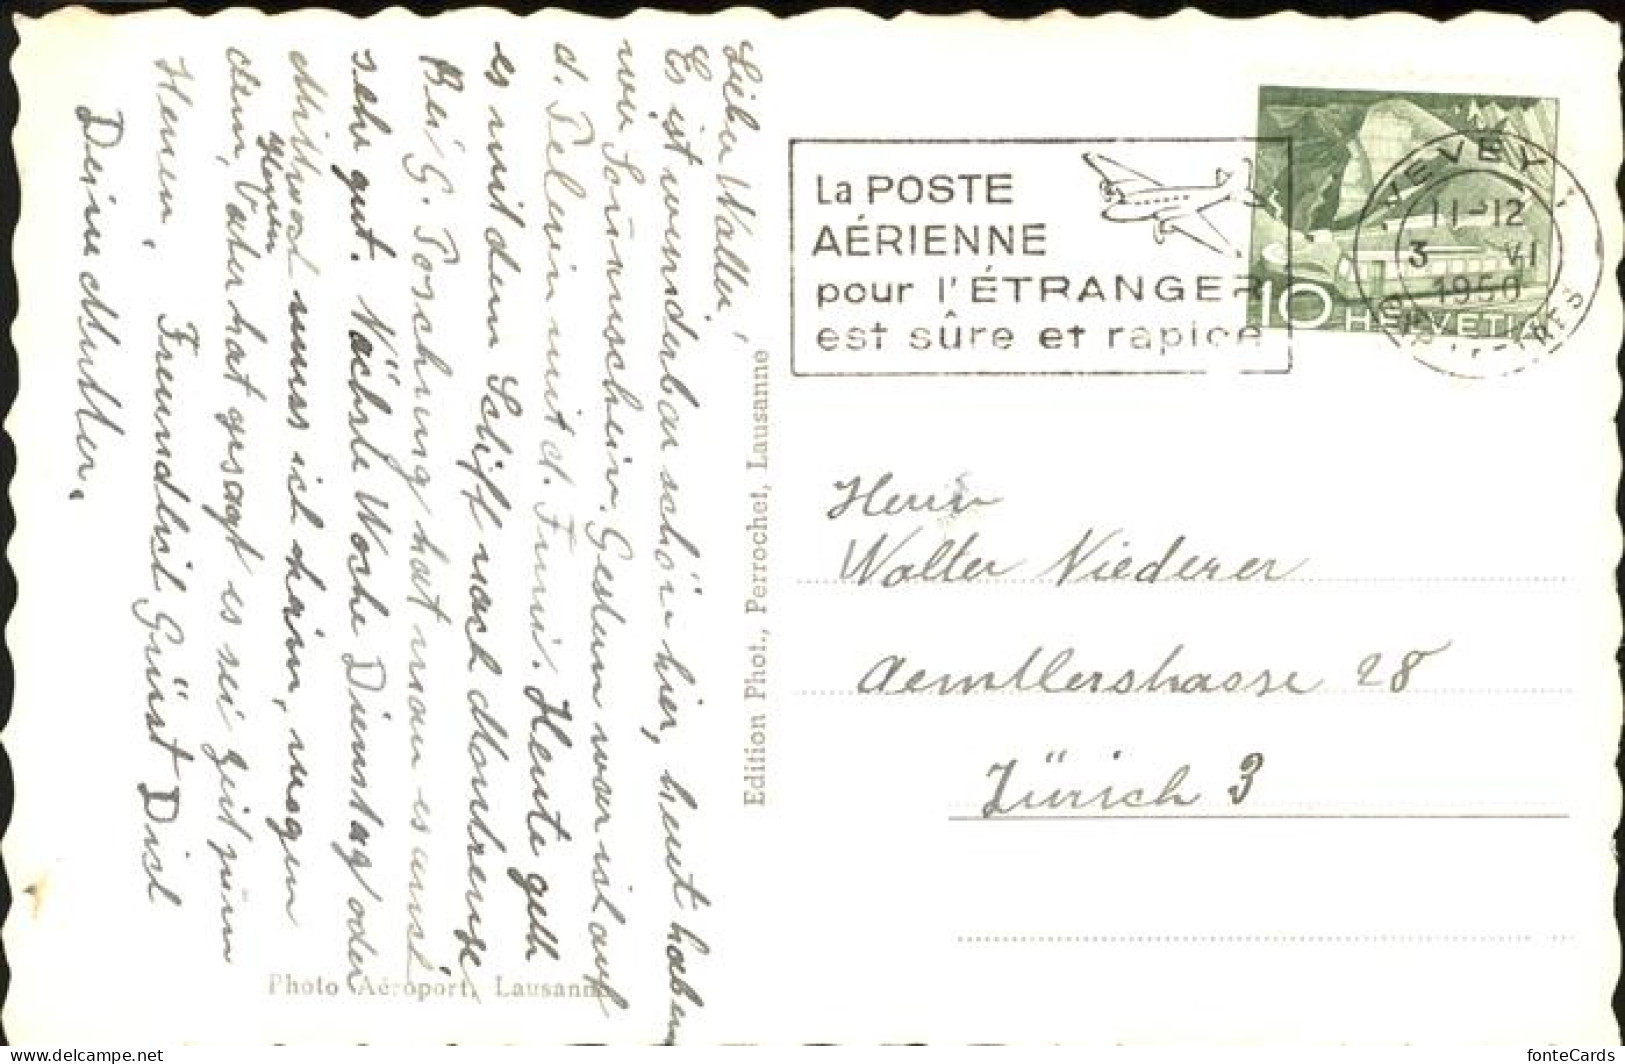 Lieber Walter!
Es ist wunderbar schön hier, heut haben
wir Sonnenschein. Gestern war ich auf
d. Pelerin mit d. Funi. Heute geth
es mit dem Schiff nach Montreux
Bei G. Poschung hat man es
sehr gut. Nächste Woche Dienstag oder
Mittwoch muss ich heim, wegen
Heuen
dem, Vater hat gesagt es sei Zeit zum
Heuen. Freundlich Grüsst Dich
Deine Mutter.
Edition Phot., Perrochet, Lausanne
Photo Aéroport, Lausanne
La POSTE
AÉRIENNE
pour l'ÉTRANGER
est sûre et rapide
VEVEY
11-12
3 VI
1950
10 HELVETIA
Herrn
Walter Niederer
Aemtlerstrasse 28
Zürich 3
fonteCards